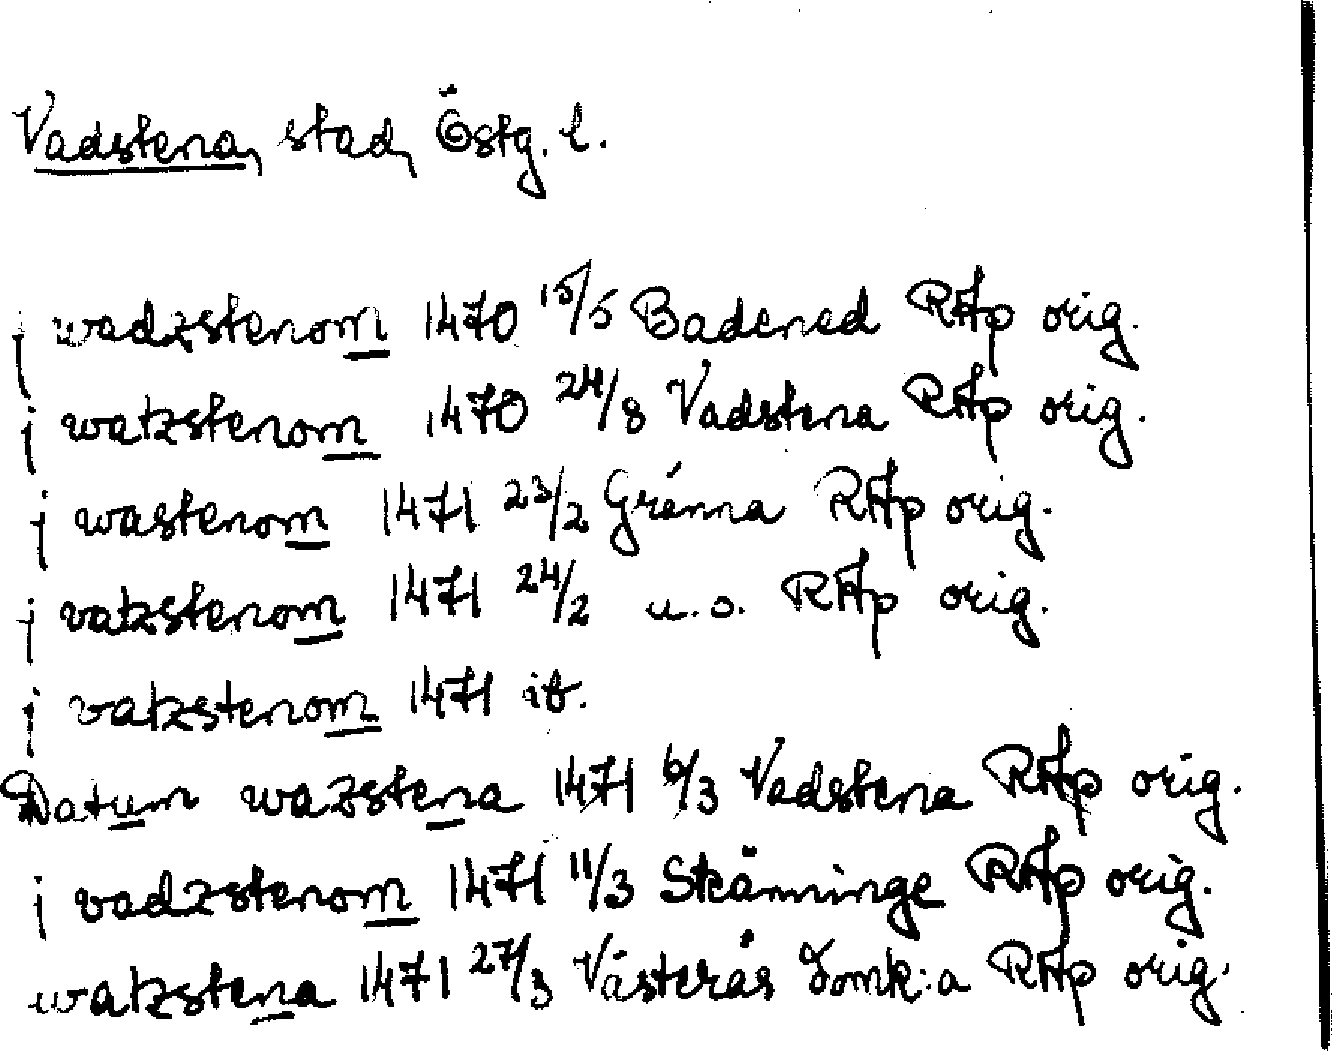 Vadstena, stad, Östg. l.
j wadzstenom 1470 15/5 Badened RAp orig.
j watzstenom 1470 24/8 Vadstena RAp orig.
j wastenom 1471 23/2 Gränna RAp orig.
j vatzstenom 1471 24/2 u.o. RAp orig.
j vatzstenom 1471 ib.
Datum wazstena 1471 6/3 Vadstena RAp orig.
j vadzstenom 1471 11/3 Skänninge RAp orig.
watzstena 1471 27/3 Västerås domk:a RAp orig.